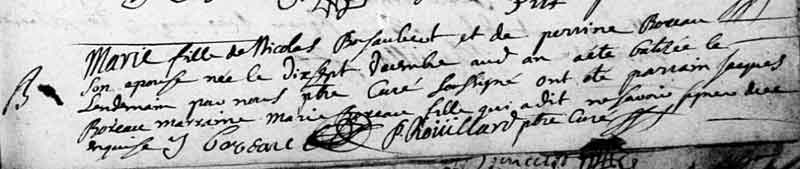 B Marie fille de Nicolas et de perrine Boreau
son epouse née le dixsept decembre aud an aété batisée le
Lendemain par nous ptre Curé soussigné ont été parrain jacques
Boreau marraine Marie Boreau fille qui adit ne savoir signer de ce
enquise J Boreau P. Roüillard ptre Curé